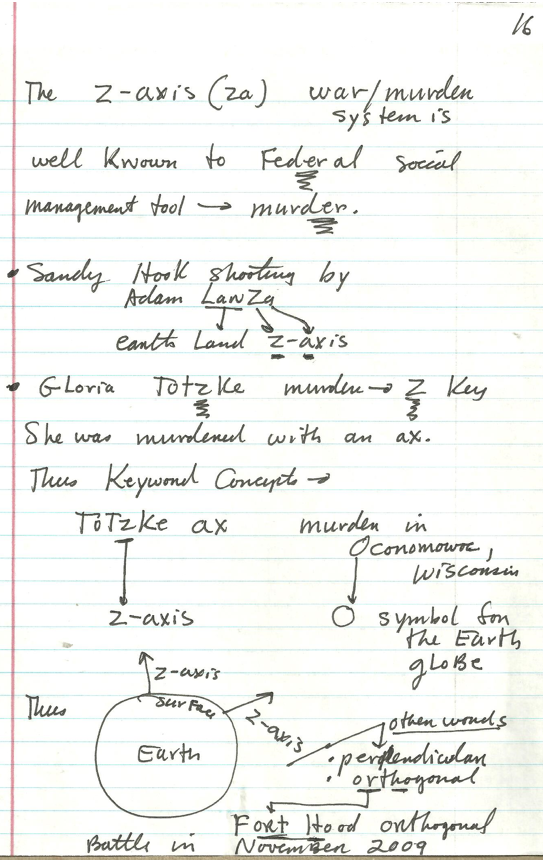 16
The Z-axis (za) war/murder
system is
well known to Federal social
management tool → murder.
• Sandy Hook shooting by
Adam LanZa
earth Land z-axis
• Gloria Totzke murder → Z Key
She was murdered with an ax.
Thus Keyword Concepts →
ToTzke ax murder in
Oconomowoc,
Wisconsin
Z-axis O symbol for
the Earth
globe
Z-axis
Thus surface Z-axis other words
Earth • perpendicular
• orthogonal
Fort Hood orthogonal
Battle in November 2009